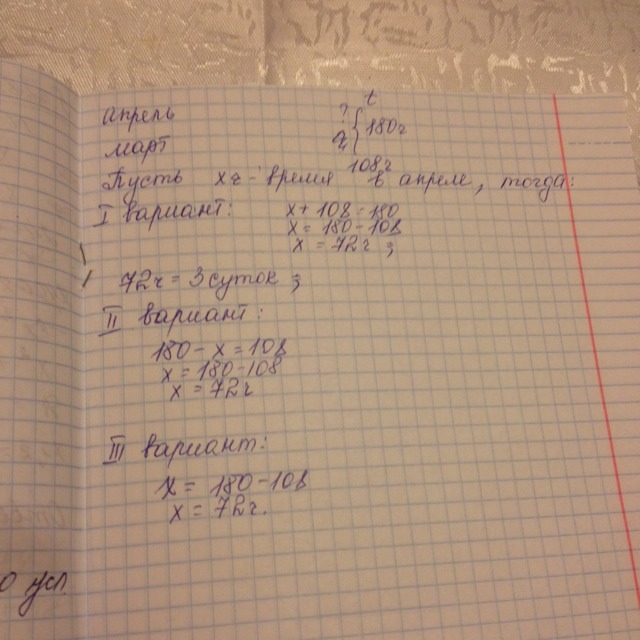 t
апрель ?
март 180ч
108ч
Пусть х ч - время в апреле, тогда:
I вариант: х + 108 = 180
х = 180 - 108
х = 72ч ;
72ч = 3 суток ;
II вариант:
180 - х = 108
х = 180 - 108
х = 72ч
III вариант:
х = 180 - 108
х = 72ч.
о усл